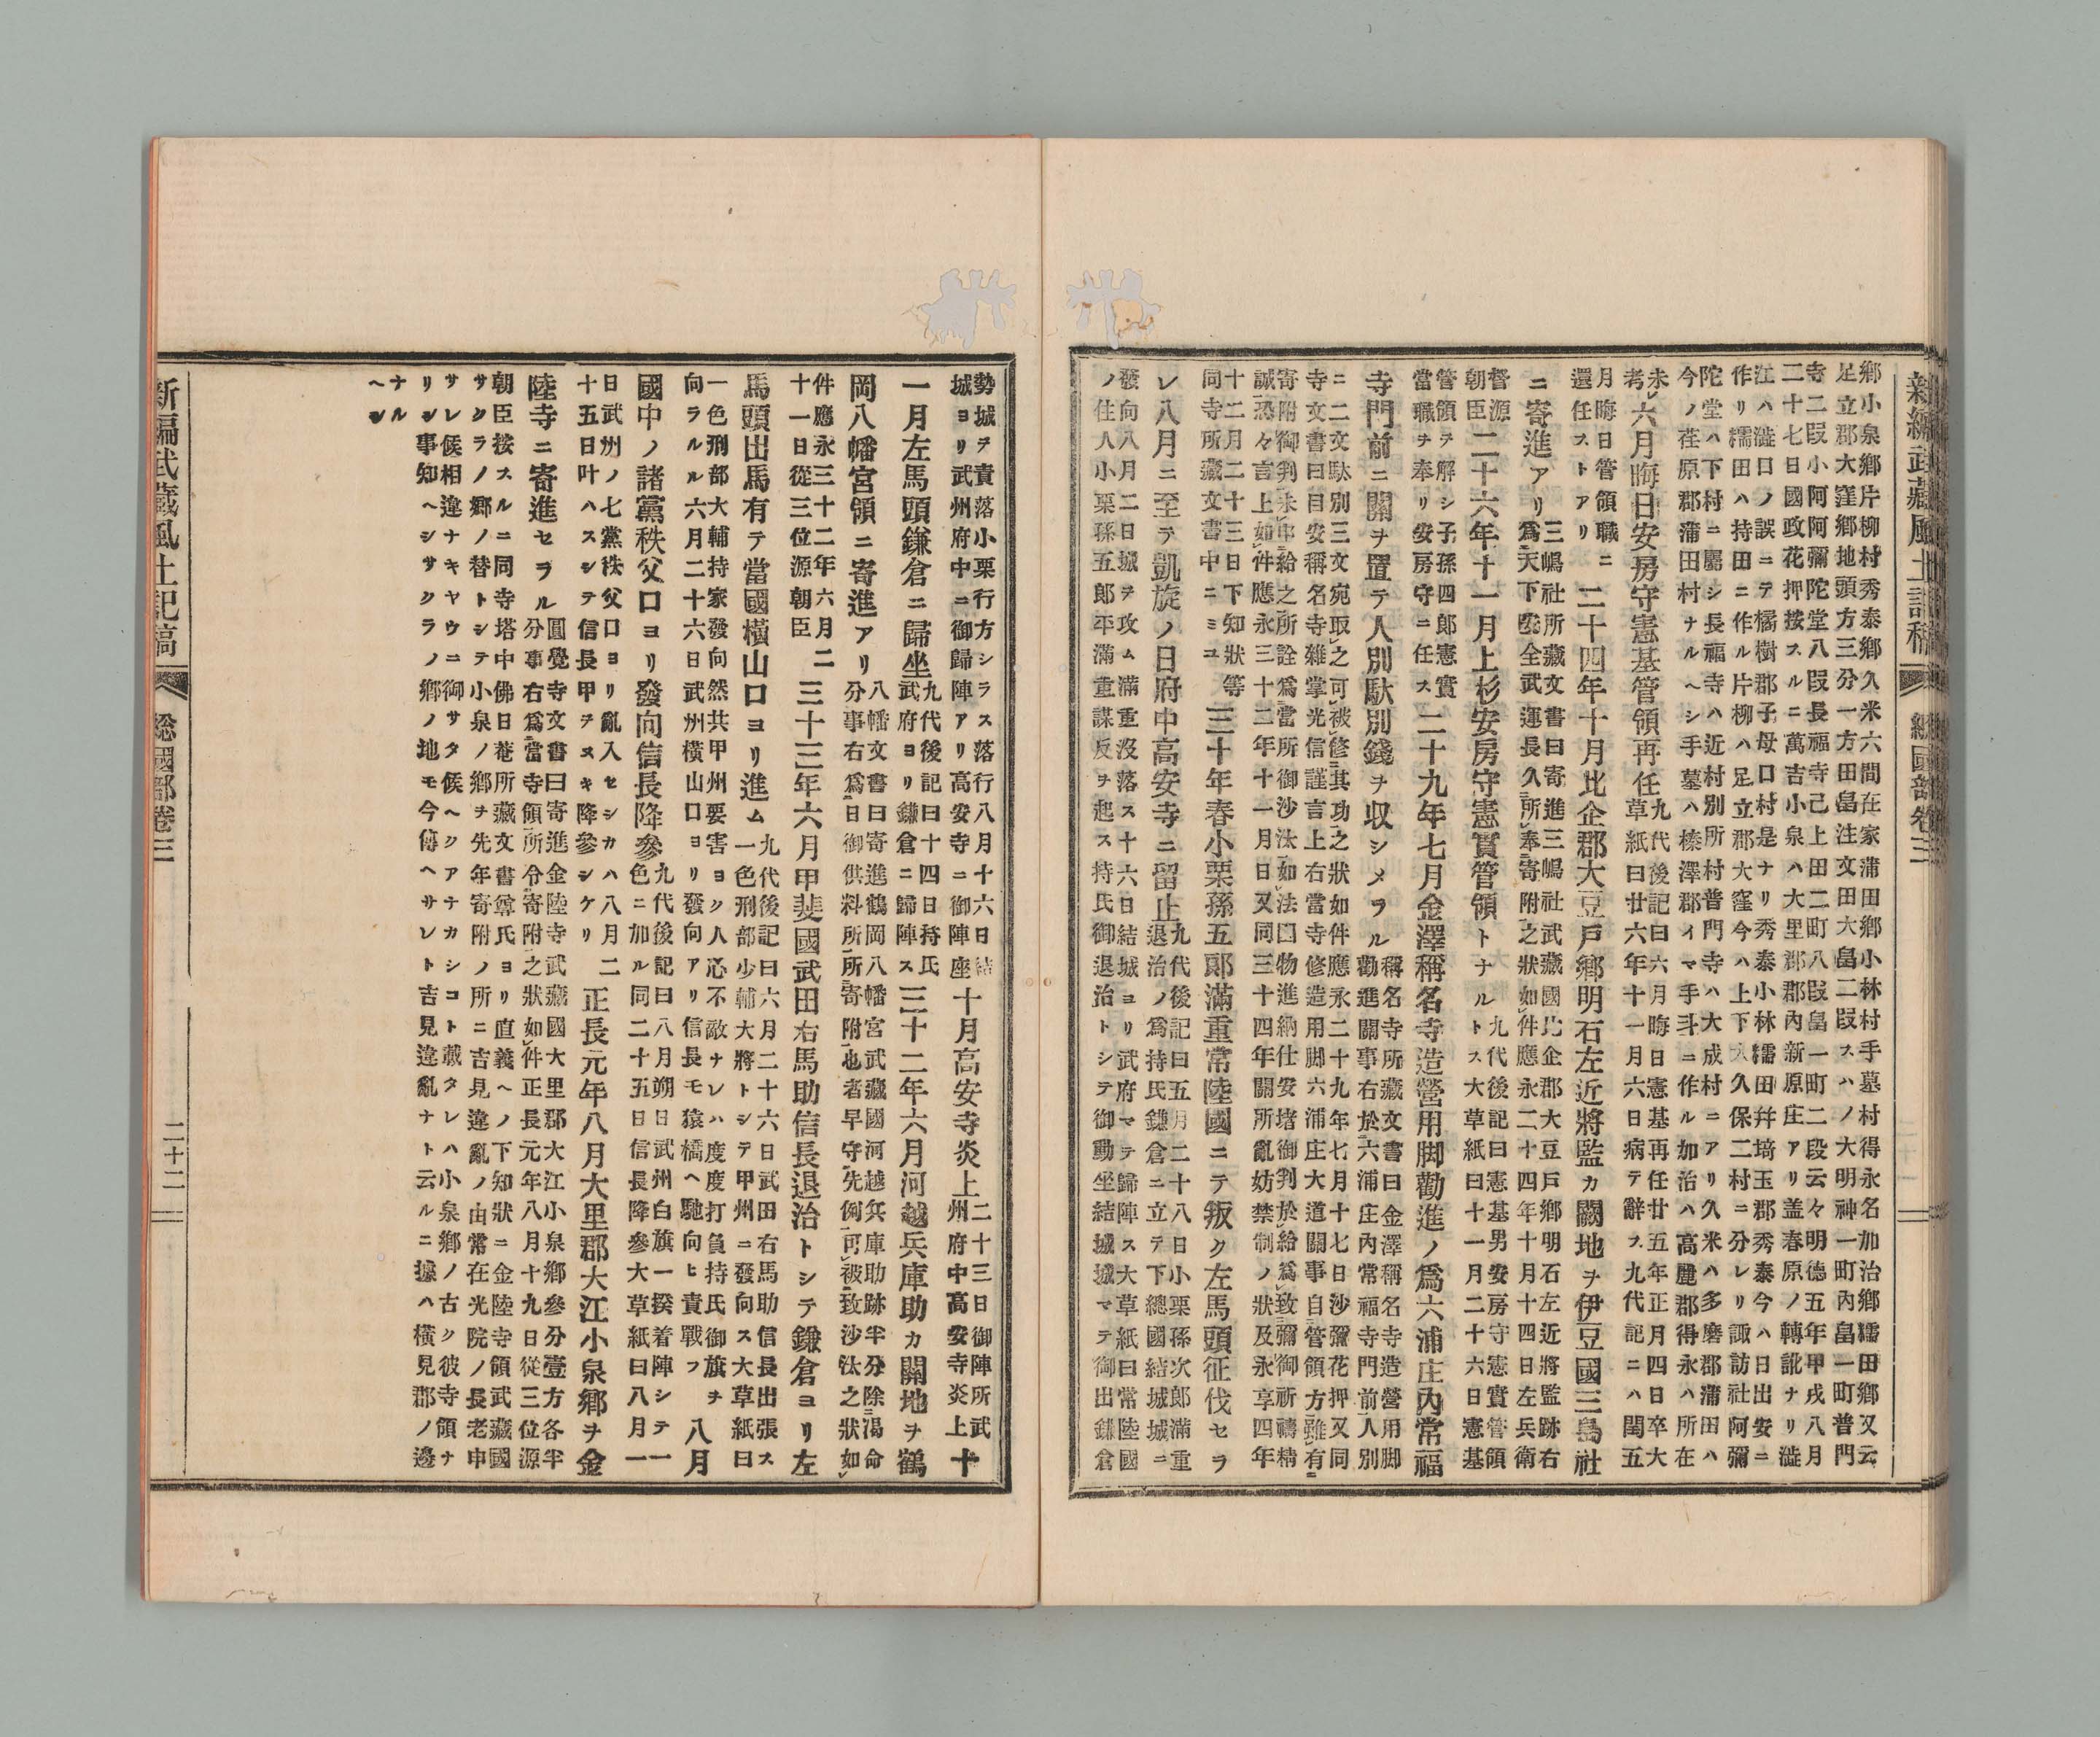 新編武藏風土記稿　總國部卷三
鄕小泉鄕片柳村秀泰鄕久米六間在家蒲田鄕小林村手墓村得永名加治鄕糯田鄕又云
足立郡大窪鄕地頭方三分一方田畠注文田大畠二段スハノ大明神一町內畠一町普門
寺二段小阿阿彌陀堂八段長福寺己上田二町八段畠一町二段云々明德五年甲戌八月
二十七日國政花押按スルニ萬吉小泉ハ大里郡內新原庄アリ盖春原ノ轉訛ナリ澁
江ハ澁口ノ誤ニテ橘樹郡子母口村是ナリ秀泰小林糯田幷埼玉郡秀泰今ハ日出安ニ
作リ糯田ハ持田ニ作ル片柳ハ足立郡大窪今ハ上下大久保二村ニ分レリ諏訪社阿彌
陀堂ハ下村ニ屬シ長福寺ハ近村別所村普門寺ハ大成村ニアリ久米ハ多磨郡蒲田ハ
今ノ荏原郡蒲田村ナルヘシ手墓ハ榛澤郡イマ手斗ニ作ル加治ハ高麗郡得永ハ所在
未
考 六月晦日安房守憲基管領再任 九代後記曰六月晦日憲基再任廿五年正月四日卒大
草紙曰廿六年十一月六日病テ辭ス九代記ニハ閏五
月晦日管領職ニ
還任ストアリ 二十四年十月比企郡大豆戶鄕明石左近將監カ闕地ヲ伊豆國三島社
ニ寄進アリ 三嶋社所藏文書曰寄進三嶋社武藏國比企郡大豆戶鄕明石左近將監跡右
爲天下安全武運長久所奉寄附之狀如件應永二十四年十月十四日左兵衛
督源
朝臣 二十六年十一月上杉安房守憲實管領トナル 九代後記曰憲基男安房守憲實管領
トス大草紙曰十一月二十六日憲基
管領ヲ解シ子孫四郎憲實
當職ヲ奉リ安房守ニ任ス 二十九年七月金澤稱名寺造營用脚勸進ノ爲六浦庄內常福
寺門前ニ關ヲ置テ人別駄別錢ヲ収シメラル 稱名寺所藏文書曰金澤稱名寺造營用脚
勸進關事右於六浦庄內常福寺門前人別
ニ二文駄別三文宛取之可被修其功之狀如件應永二十九年七月十七日沙彌花押又同
寺文書曰目安稱名寺雜掌光信謹言上右當寺修造用脚六浦庄大道關事自管領方雖有
寄附御判未申給之所詮爲當所御沙汰如法囚物進納仕安堵御判於給爲致彌御祈禱精
誠恐々言上如件應永三十二年十一月日又同三十四年關所亂妨禁制ノ狀及永享四年
十二月二十三日下知狀等
同寺所藏文書中ニミユ 三十年春小栗孫五郞滿重常陸國ニテ叛ク左馬頭征伐セラ
レ八月ニ至テ凱旋ノ日府中高安寺ニ留止 九代後記曰五月二十八日小栗孫次郎滿重
退治ノ爲持氏鎌倉ニ立テ下總國結城城ニ
發向八月二日城ヲ攻ム滿重沒落ス十六日結城ヨリ武府マテ歸陣ス大草紙曰常陸國
ノ住人小栗孫五郎平滿重謀反ヲ起ス持氏御退治トシテ御動坐結城城マテ御出鎌倉
勢城ヲ責落小栗行方シラス落行八月十六日結
城ヨリ武州府中ニ御歸陣アリ高安寺ニ御陣座 十月高安寺炎上 二十三日御陣所武
州府中高安寺炎上 十
一月左馬頭鎌倉ニ歸坐 九代後記曰十四日持氏
武府ヨリ鎌倉ニ歸陣ス 三十二年六月河越兵庫助カ闕地ヲ鶴
岡八幡宮領ニ寄進アリ 八幡文書曰寄進鶴岡八幡宮武藏國河越兵庫助跡半分除渴命
分事右爲日御供料所所寄附也者早守先例可被致沙汰之狀如
件應永三十二年六月二
十一日從三位源朝臣 三十三年六月甲斐國武田右馬助信長退治トシテ鎌倉ヨリ左
馬頭出馬有テ當國橫山口ヨリ進ム 九代後記曰六月二十六日武田右馬助信長出張ス
一色刑部少輔大將トシテ甲州ニ發向ス大草紙曰
一色刑部大輔持家發向然共甲州要害ヨク人心不敵ナレハ度度打負持氏御旗ヲ
向ラルル六月二十六日武州橫山口ヨリ發向アリ信長モ猿橋ヘ馳向ヒ責戰フ 八月
國中ノ諸黨秩父口ヨリ發向信長降參 九代後記曰八月朔日武州白旗一揆着陣シテ一
色ニ加ル同二十五日信長降參大草紙曰八月一
日武州ノ七黨秩父口ヨリ亂入セシカハ八月二
十五日叶ハスシテ信長甲ヲヌキ降參シケリ 正長元年八月大里郡大江小泉鄕ヲ金
陸寺ニ寄進セラル 圓覺寺文書曰寄進金陸寺武藏國大里郡大江小泉鄕參分壹方各半
分事右爲當寺領所令寄附之狀如件正長元年八月十九日從三位源
朝臣按スルニ同寺塔中佛日菴所藏文書尊氏ヨリ直義ヘノ下知狀ニ金陸寺領武藏國
サクラノ鄕ノ替トシテ小泉ノ鄕ヲ先年寄附ノ所ニ吉見違亂ノ由常在光院ノ長老申
サレ候相違ナキヤウニ御サタ候ヘクアナカシコト戴タレハ小泉鄕ノ古ク彼寺領ナ
リシ事知ヘシサクラノ鄕ノ地モ今傳ヘサレト吉見違亂ナト云ルニ據ハ橫見郡ノ邊
ナル
ヘシ
新編武藏風土記稿　總國部卷三　二十二